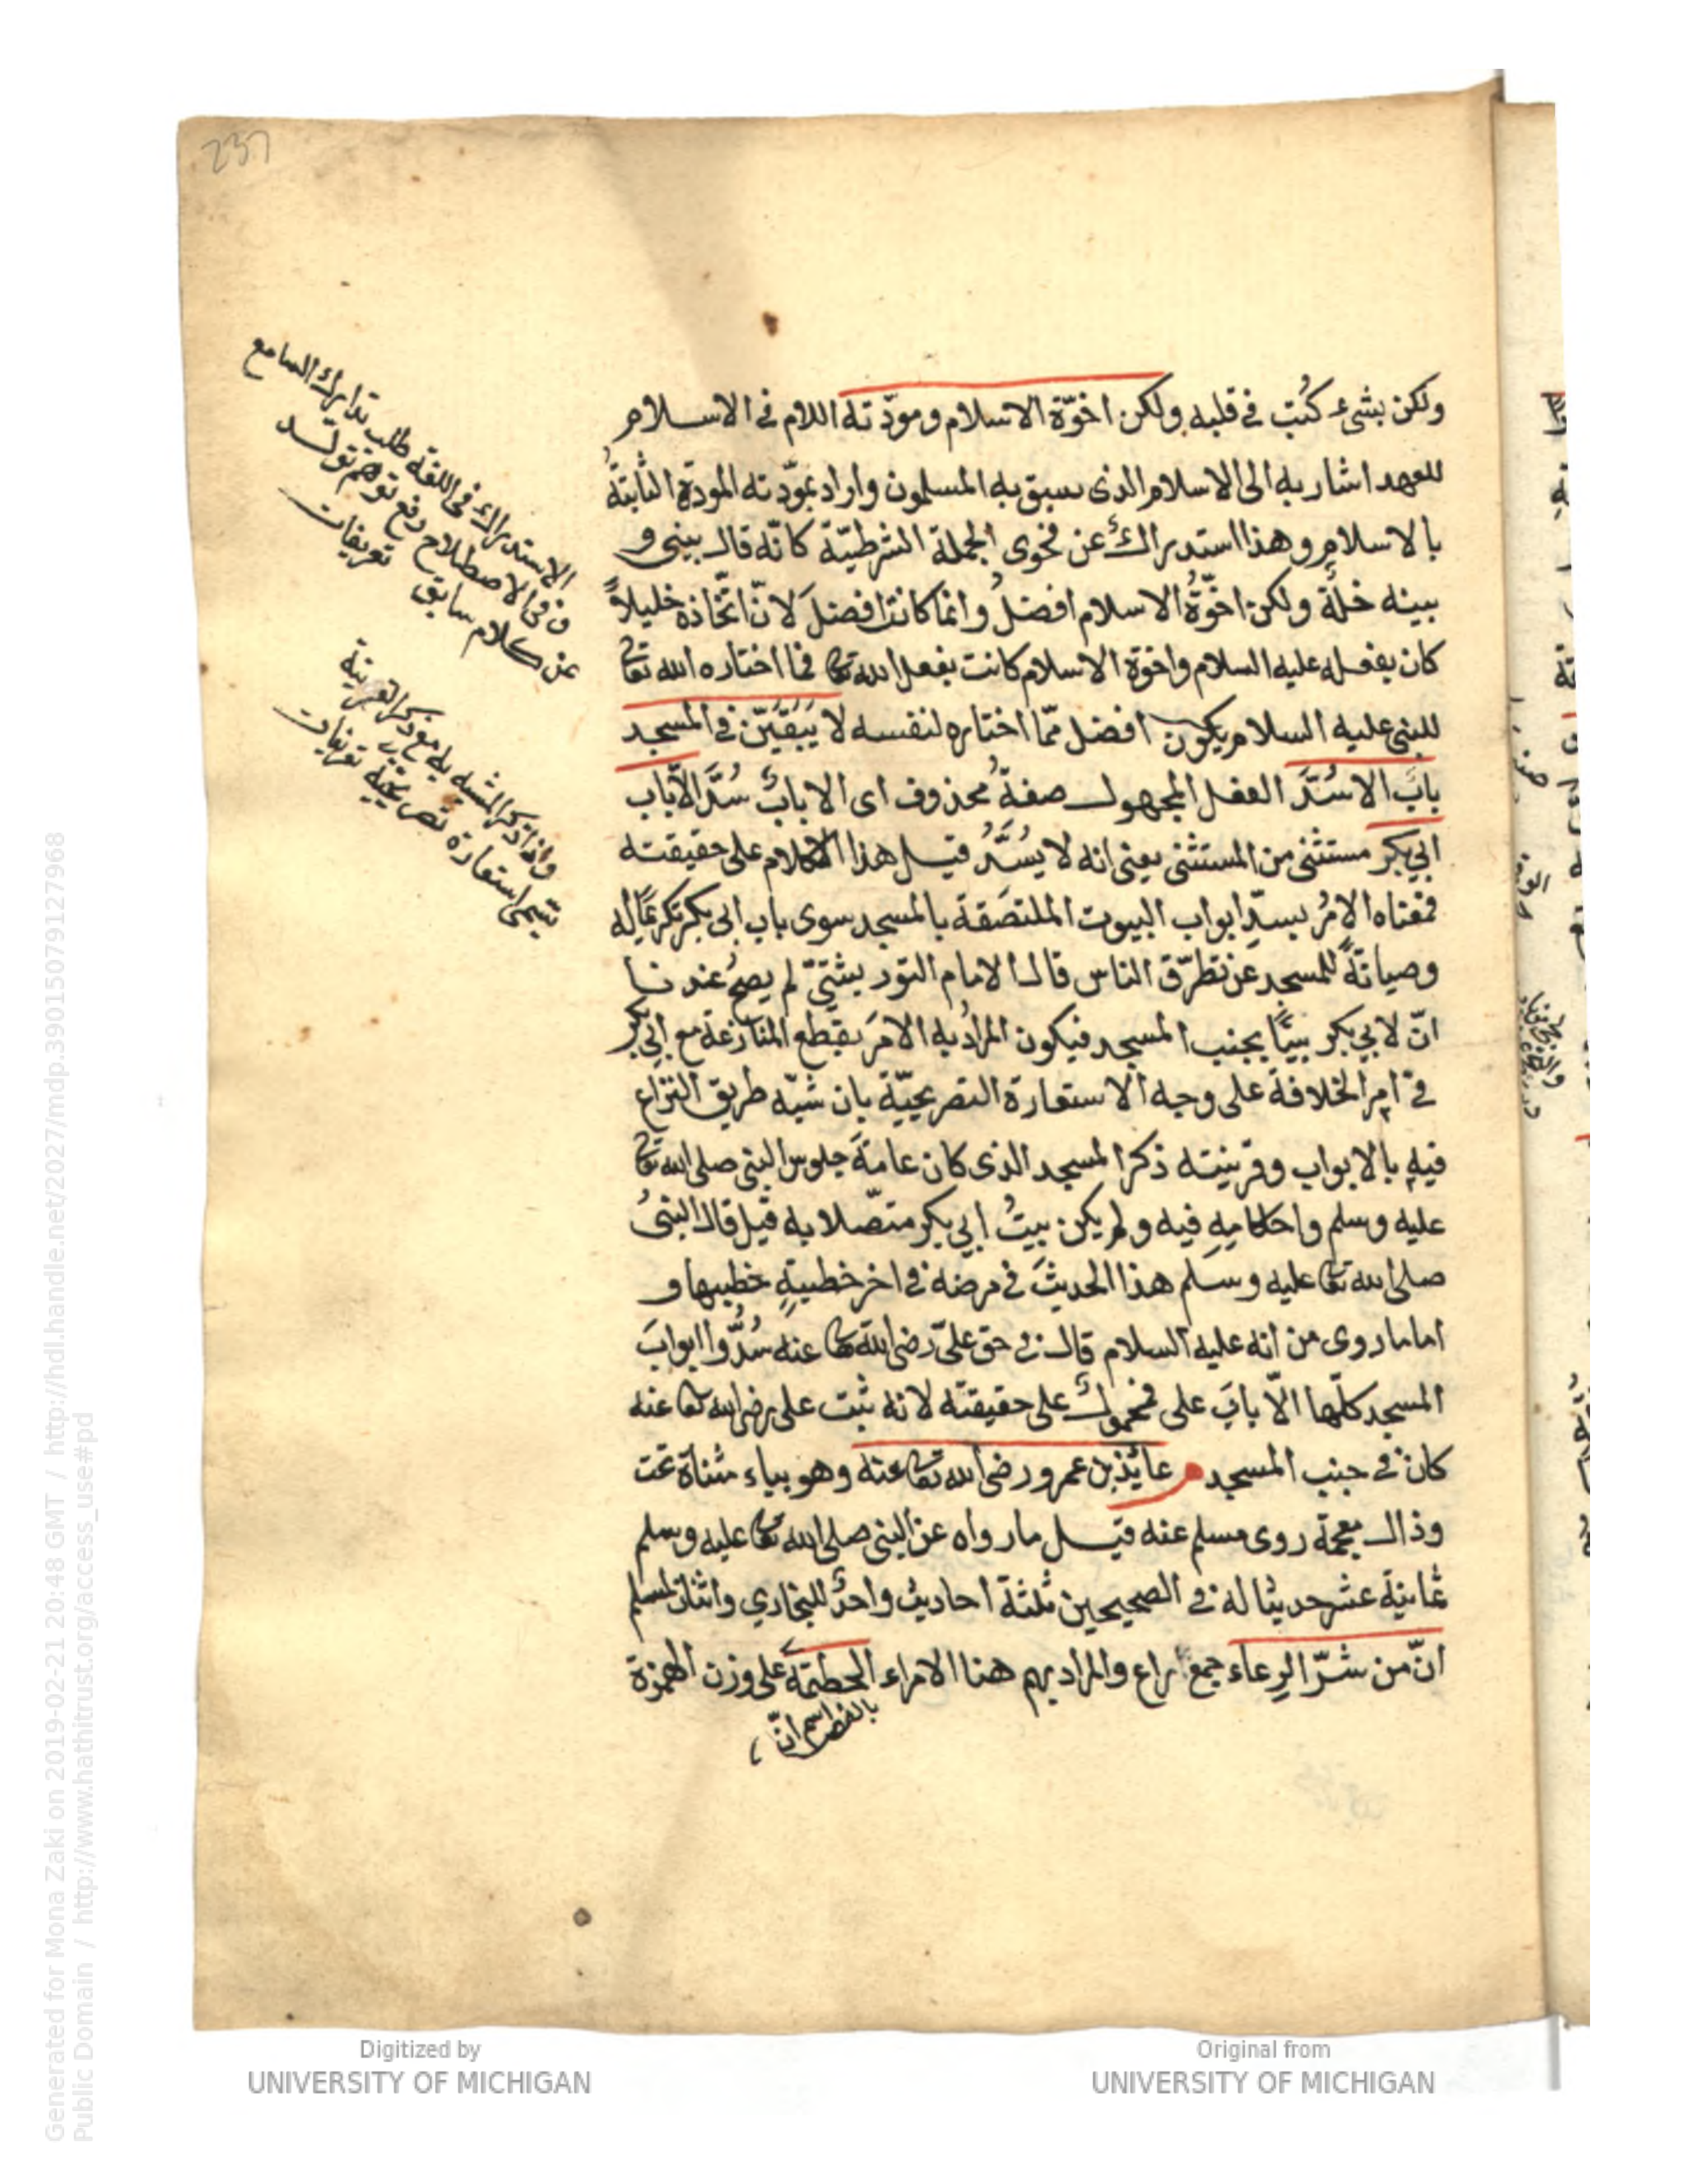 237
ولكن بشئ كُتب في قلبه ولكن اخوّة الاسلام ومودّته اللام في الاسلام
للعهد اشار به الى الاسلام الذى سبق به المسلمون واراد بمودّته المودة الثابتةُ
بالاسلام وهذا استدراكٌ عن فحوى الجملة الشرطيّة كانّه قال بينى و
بينه خلة ولكن اخوّةُ الاسلام افضلُ وانما كانت افضلَ لانّ اتّخاذه خليلاً
كان بفعله عليه السلام واخوّة الاسلام كانت بفعل الله تعا فما اختاره الله تعا
للنبى عليه السلام يكون افضل ممّا اختاره لنفسه لا يَبْقَيَنّ في المسجد
بابٌ الا سُدَّ الفعل المجهول صفةُ محذوف اى الا بابٌ سُدَّ الّا باب
ابي بكر مستثنى من المستثنى يعنى انه لا يُسَدُّ قيل هذا الكلام على حقيقته
فمعناه الامرُ بسدّ ابواب البيوت الملتصَقة بالمسجد سوى باب ابى بكر تكريمًا له
وصيانةً للمسجد عن تطرّق الناس قال الامام التوربشتىّ لم يصحّ عندنا
انّ لابي بكر بيتًا بجنب المسجد فيكون المرادُ به الامرَ بقطع المنازعة مع ابي بكر
في امر الخلافة على وجه الاستعارة التصريحيّة بان شبّه طريق النزاع
فيه بالابواب وقرينته ذكر المسجد الذى كان عامةَ جلوس النبى صلى الله تعا
عليه وسلم واحكامِهِ فيه ولم يكن بيتُ ابي بكر متصّلا به قيل قال النبىُ
صلى الله تعا عليه وسلم هذا الحديثَ في مرضه في اخر خطبةٍ خطبها و
اما ما روى من انه عليه السلام قال في حق علىّ رضى الله تعا عنه سُدُّوا ابوابَ
المسجد كلّها الّا بابَ على فمحمولٌ على حقيقته لانه ثبت على رضى الله تعا عنه
كان في جنب المسجد م عائذ بن عمرو رضى الله تعا عنه وهو بياء مثناة تحت
وذال معجمة روى مسلم عنه قيل ما رواه عن النبى صلى الله تعا عليه وسلم
ثمانية عشر حديثا له في الصحيحين ثلثة احاديث واحدٌ للبخاري واثنان لمسلم
انّ من شرّ الرِعاء جمع راع والمراد بهم هنا الامراء الحطمَة على وزن الهمزة
بالنصب اسم انّ
الاستدراك في اللغة طلب تدارك السامع
وفي الاصطلاح دفع توهم تولّد
من كلام سابق تعريفات
واذا ذكر المشبه به مع ذكر القرينة
تسمى استعارة تصريحية تعريفات
Digitized by
UNIVERSITY OF MICHIGAN
Original from
UNIVERSITY OF MICHIGAN
Generated for Mona Zaki on 2019-02-21 20:48 GMT / http://hdl.handle.net/2027/mdp.39015079127968
Public Domain / http://www.hathitrust.org/access_use#pd